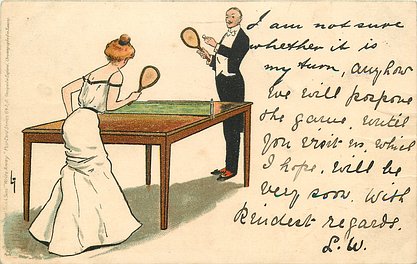 I am not sure
whether it is
my turn, anyhow
we will postpone
the game, until
you visit us, which
I hope, will be
very soon. With
kindest regards.
L. W.